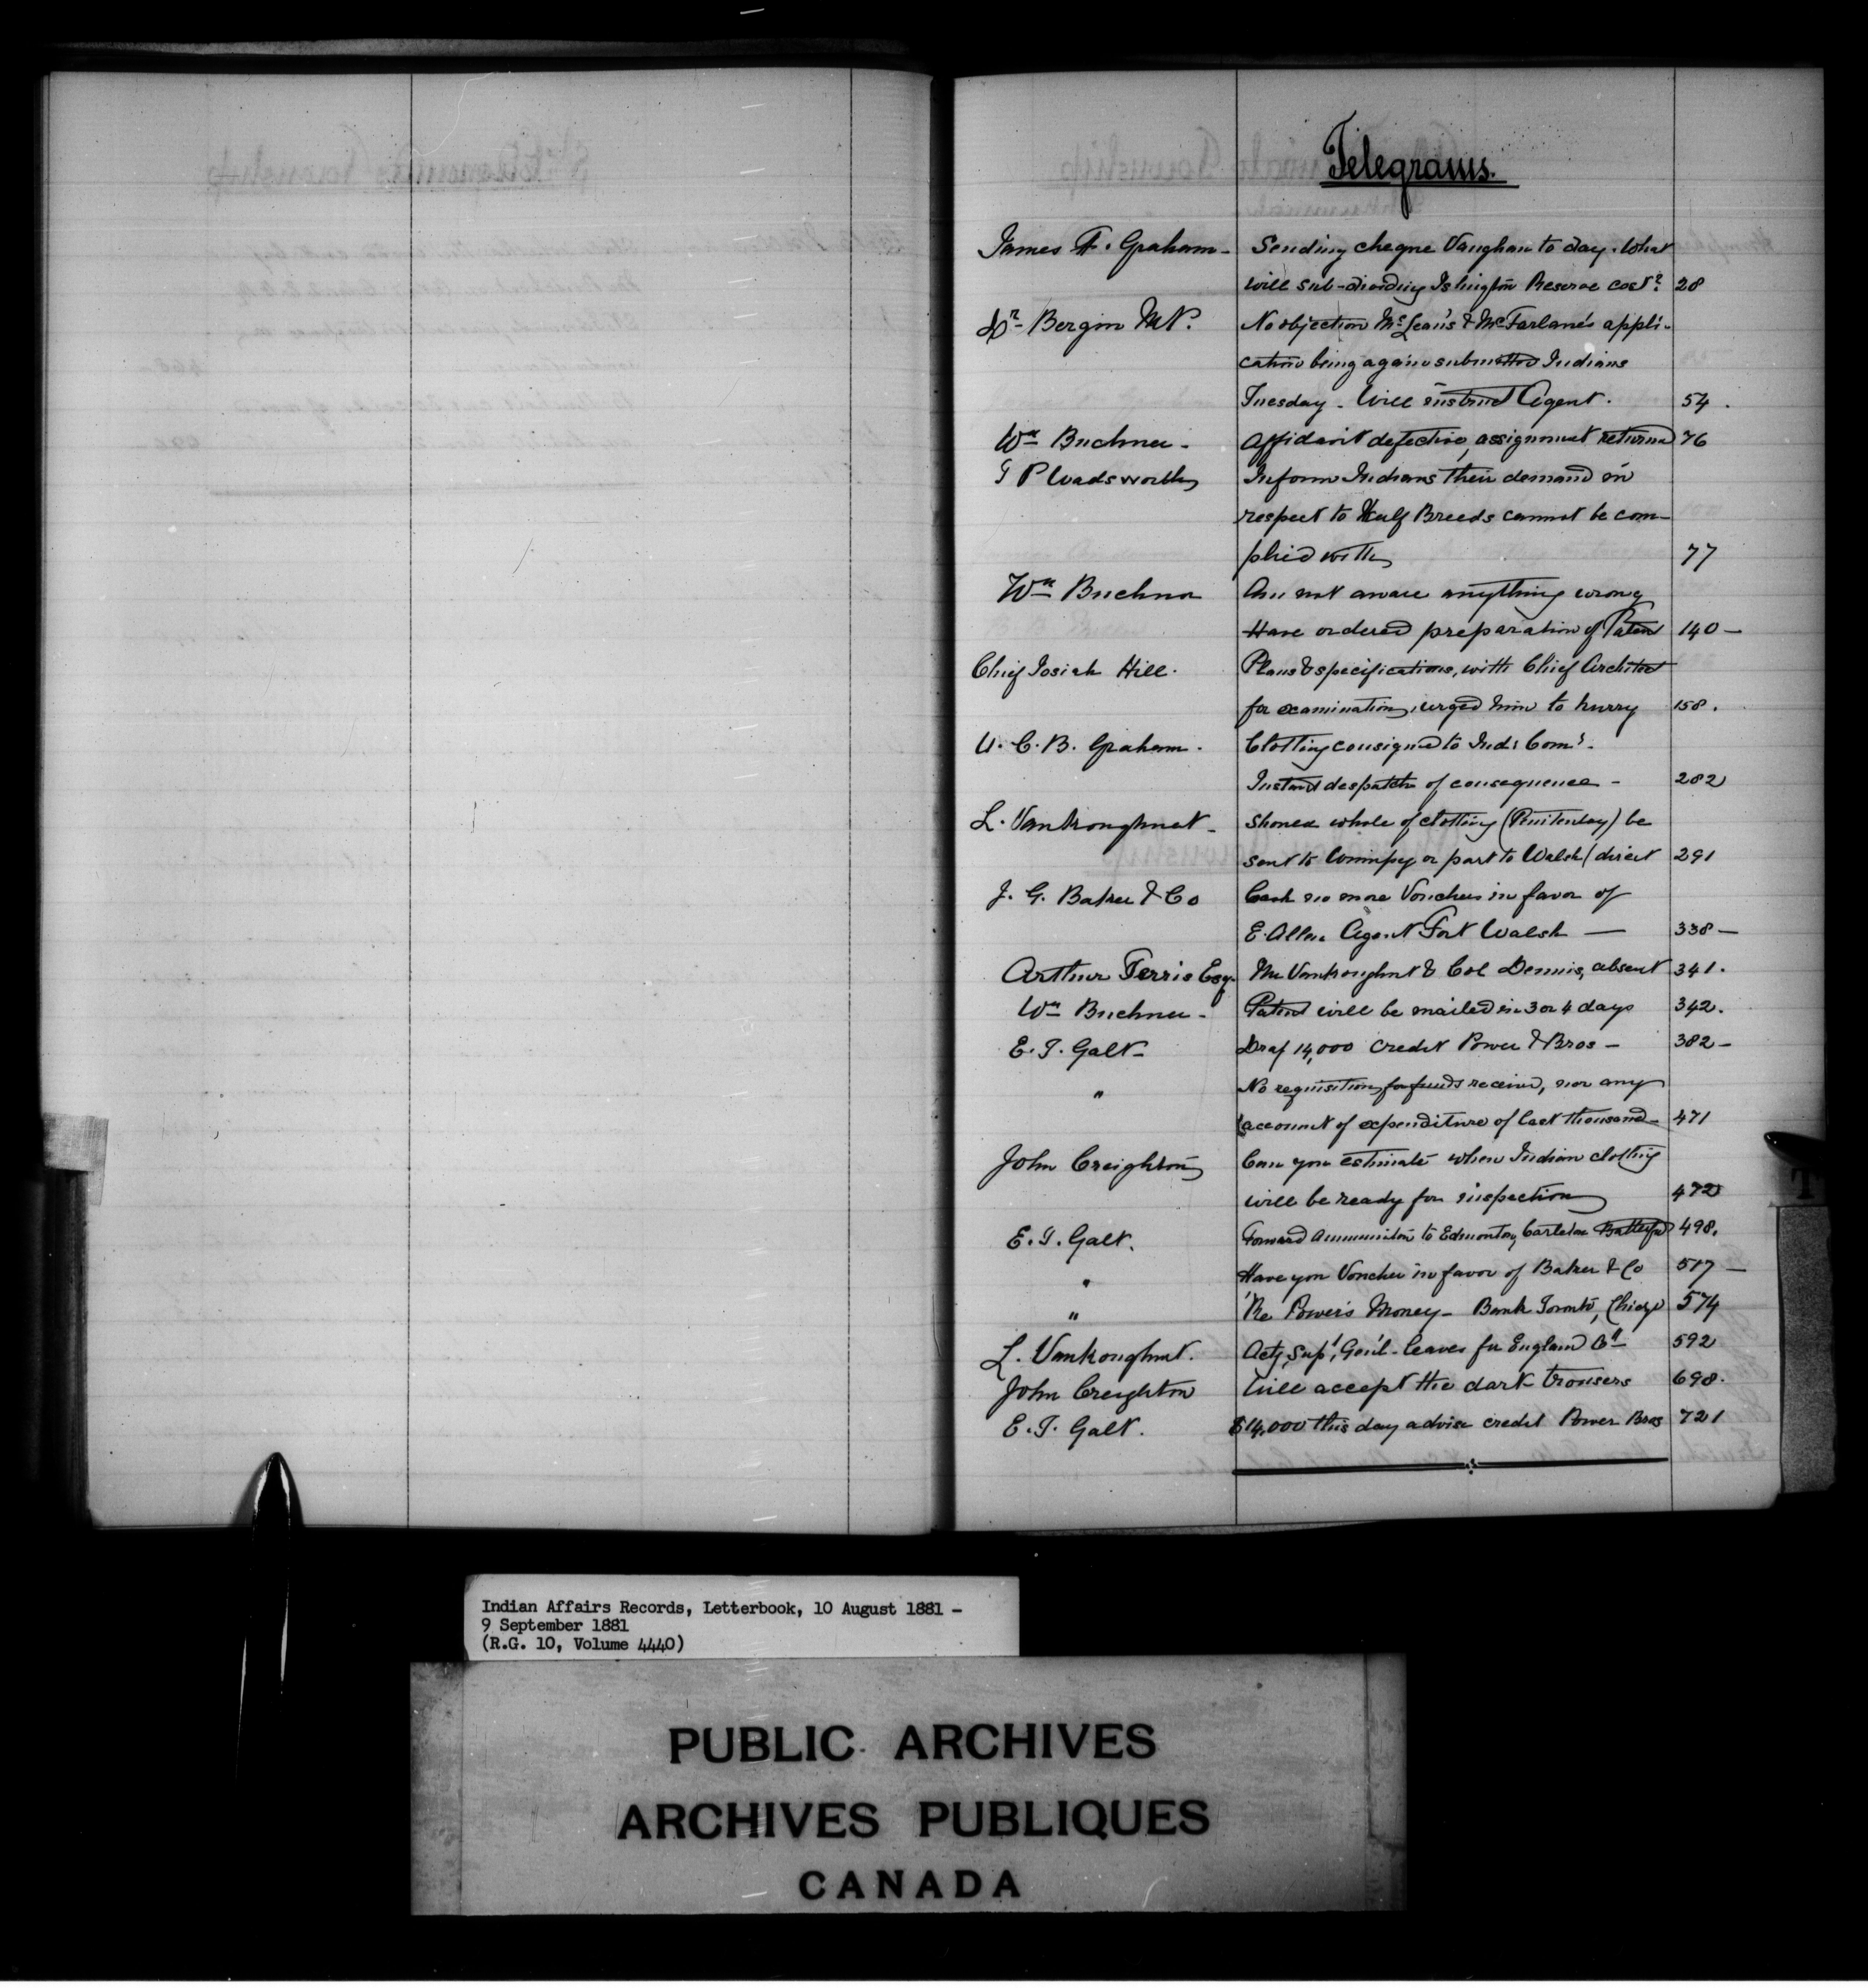 Telegrams.
James F. Graham - Sending cheque Vaughan to day. What
will sub-dividing Islington Reserve cost? 28
Dr Bergin M.P. No objection McLean's & McFarlane's appli-
cation being again submitted Indians
Tuesday - Will instruct Agent. 54.
Wm Buchner - Affidavit defective, assignment returned 76
T P Wadsworth Inform Indians their demand in
respect to Half Breeds cannot be com-
plied with 77
Wm Buchner Am not aware anything wrong
Have ordered preparation of Patent 140 -
Chief Josiah Hill. Plans & specifications, with Chief Architect
for examination, urged him to hurry 158.
U. C. B. Graham. Clothing consigned to Ind: Comr.
Instant despatch of consequence - 282
L. Vankoughnet - Should whole of clothing (Penitentiary) be
sent to Winnipeg or part to Walsh direct 291
J. G. Baker & Co Cash no more Vouchers in favor of
E. Allen Agent Fort Walsh - 338 -
Arthur Ferris Esq. Mr Vankoughnet & Col Dennis, absent 341.
Wm Buchner - Patent will be mailed in 3 or 4 days 342.
E. T. Galt - Draf 14,000 credit Power & Bros - 382 -
" No requisition for funds received, nor any
account of expenditure of last thousand - 471
John Creighton Can you estimate when Indian clothing
will be ready for inspection 472
E. T. Galt. Forward Ammunition to Edmonton, Carleton Battleford 498.
" Have you Voucher in favor of Baker & Co 517 -
" Re Power's Money - Bank Toronto, Chicago 574
L. Vankoughnet. Actg Supt, Gen'l - leaves for England 592
John Creighton Will accept the dark trousers 698.
E. T. Galt. $14,000 this day advise credit Power Bros 721
T
Indian Affairs Records, Letterbook, 10 August 1881 -
9 September 1881
(R.G. 10, Volume 4440)
PUBLIC ARCHIVES
ARCHIVES PUBLIQUES
CANADA